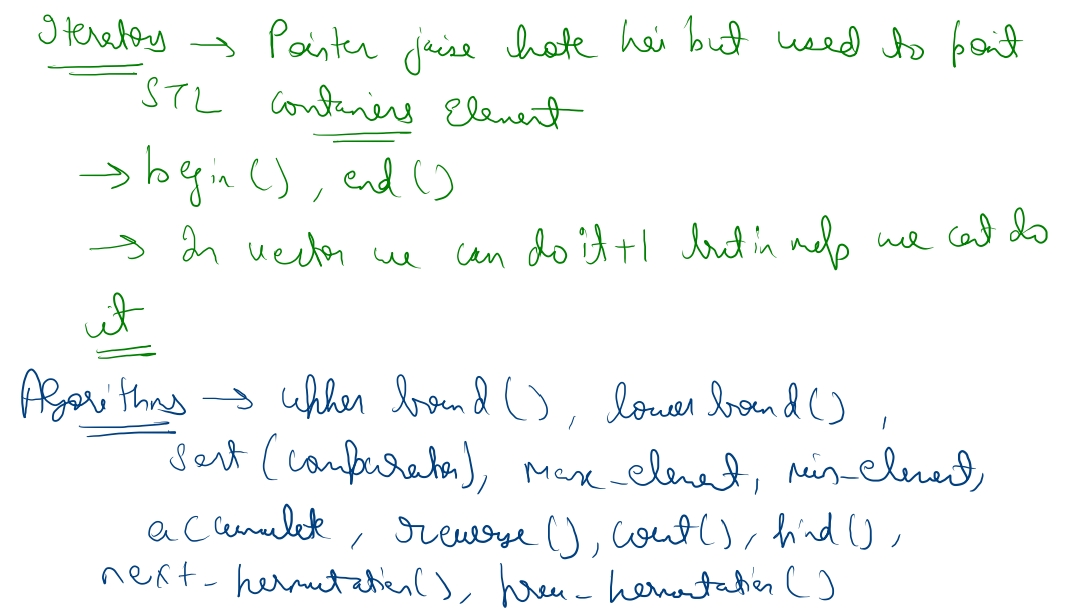 Iterators → Pointer jaise hote hai but used to point
STL containers Element
→ begin(), end()
→ In vector we can do it+1 but in map we cant do
it
Algorithms → upper bound(), lower bound(),
Sort (comparator), max_element, min_element,
accumulate, reverse(), count(), find(),
next_permutation(), prev_permutation()